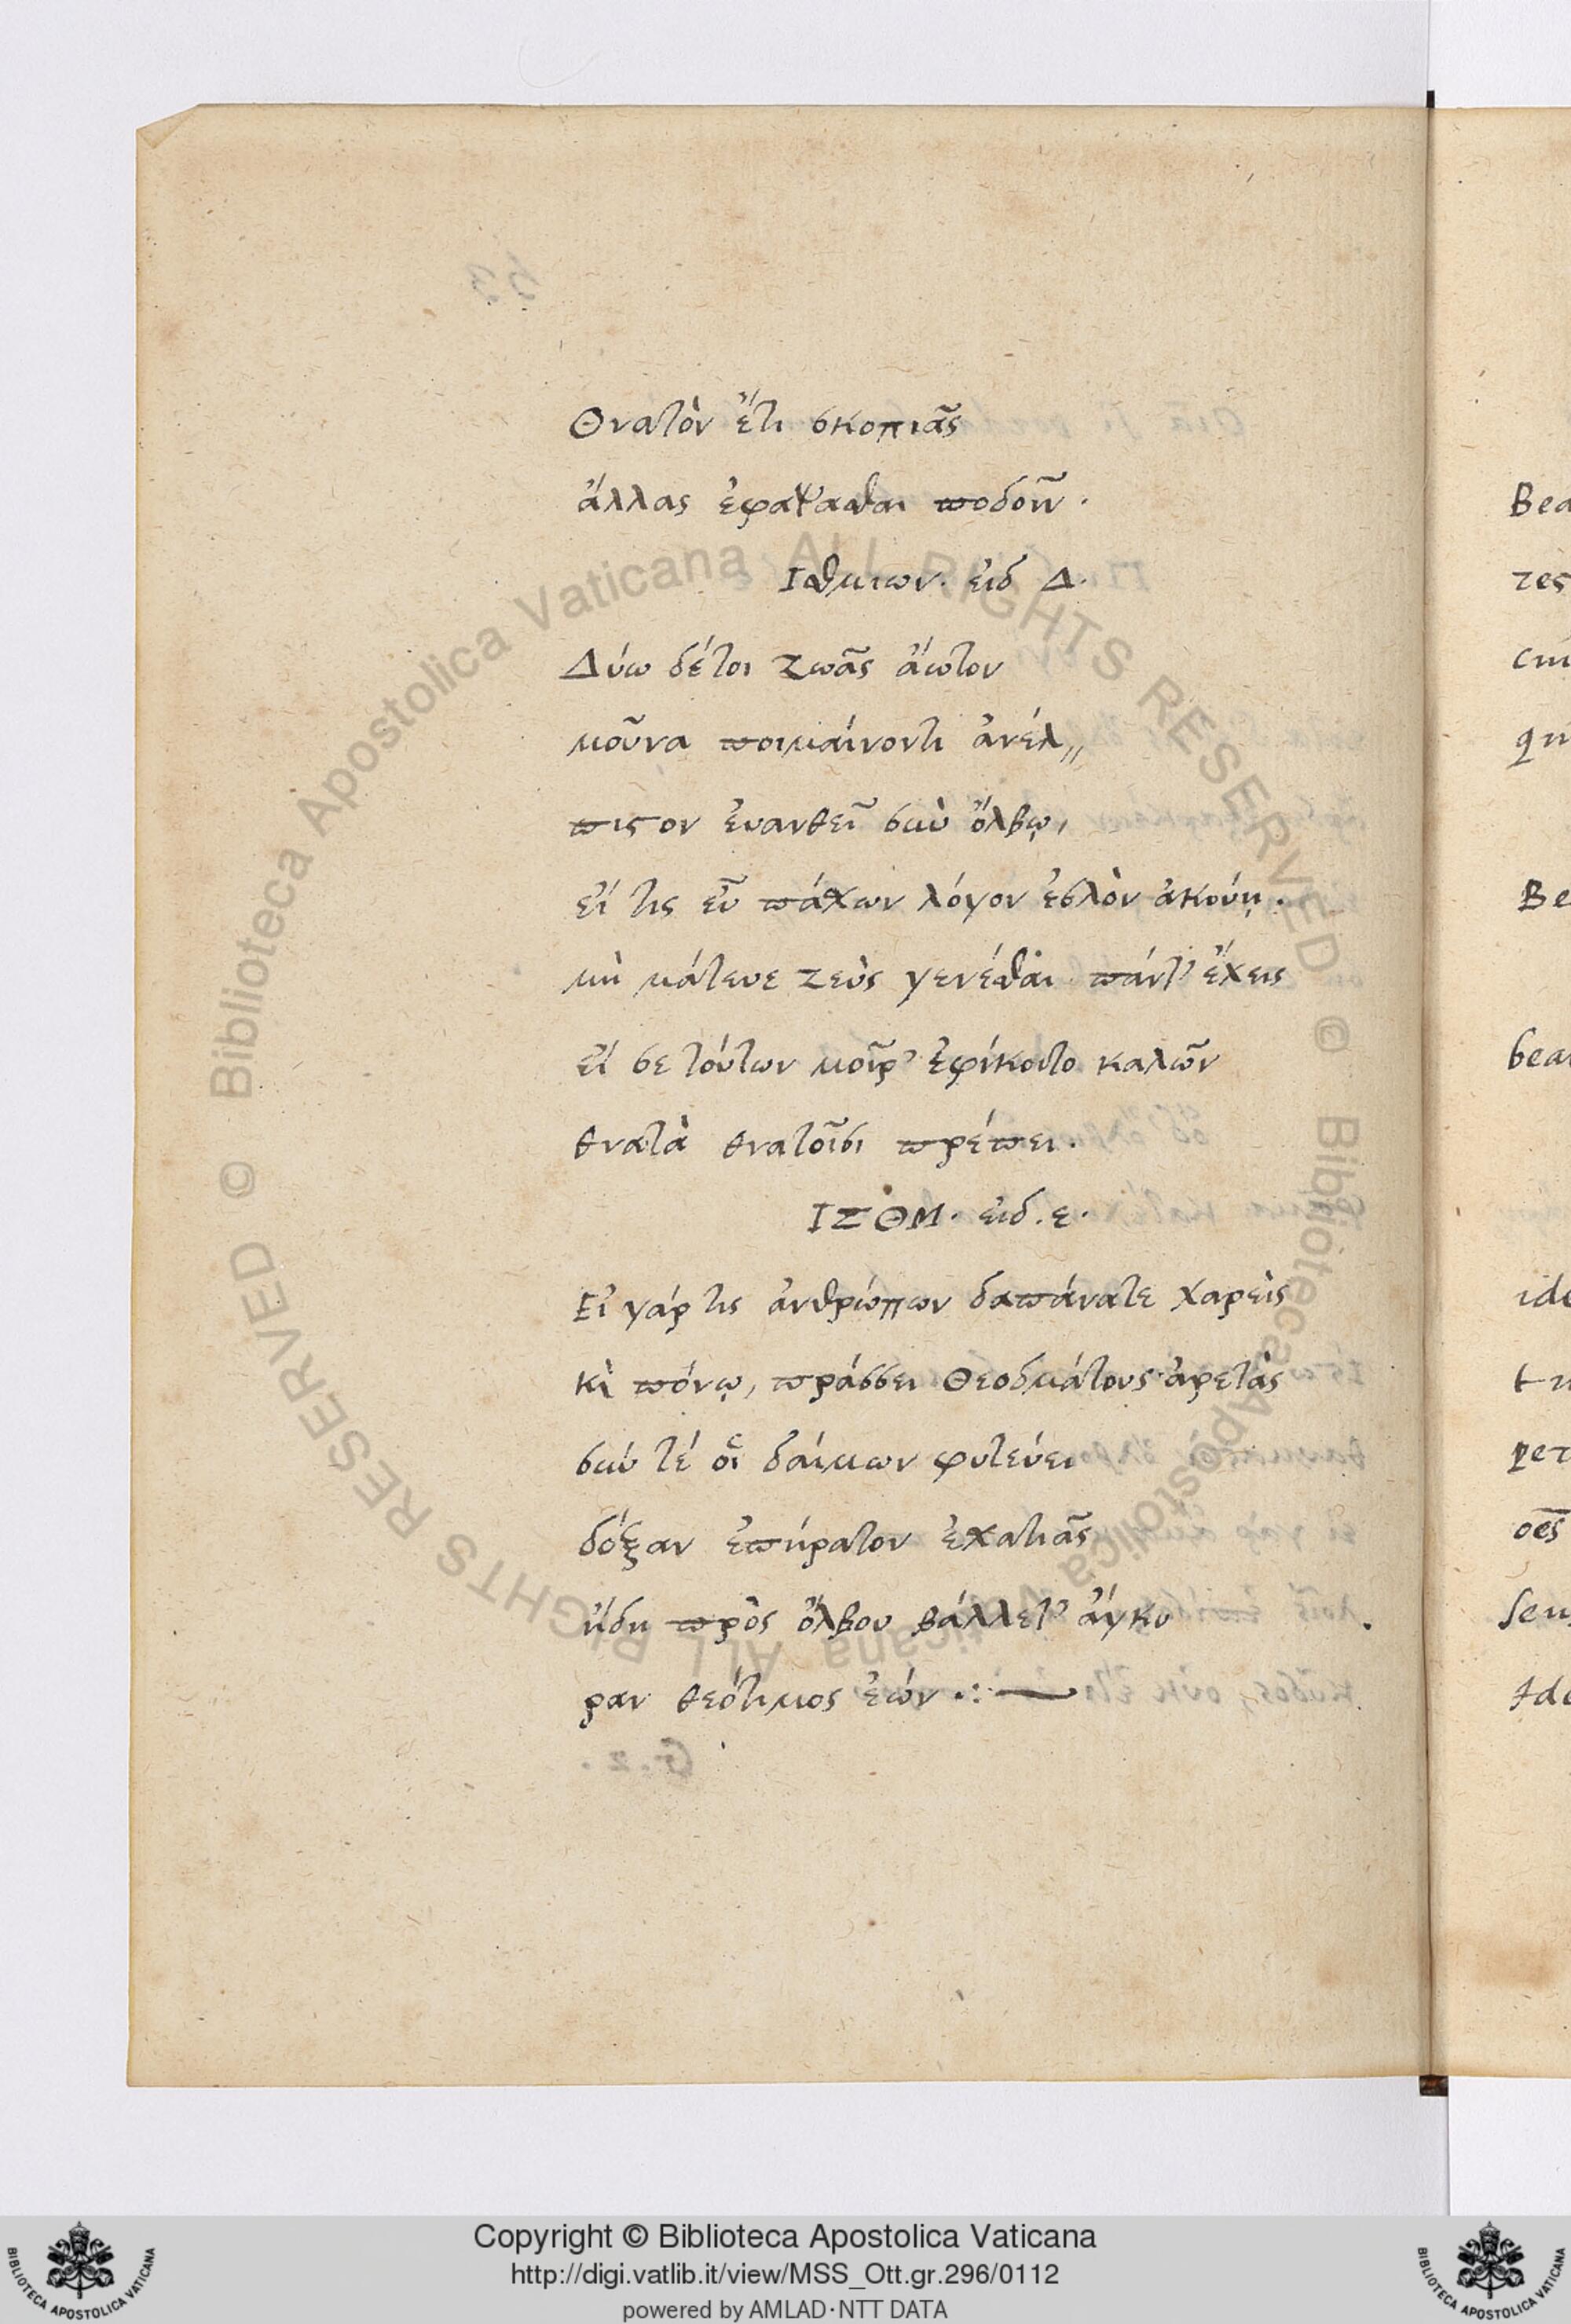 Θνατὸν ἔτι σκοπιᾶς
ἄλλας ἐφάψασθαι ποδοῖν.
Ισθμιων. ἐιδ Δ.
Δύω δέτοι ζωᾶς ἄωτον
μοῦνα ποιμαίνοντι ἀνέλ,,
πιστον ἐυανθεῖ σὺν ὄλβῳ,
εἴ τις εὖ πάσχων λόγον ἐσλὸν ἀκούῃ.
μὴ μάτευε ζεὺς γενέσθαι πάντ' ἔχεις
εἴ σε τούτων μοῖρ' ἐφίκοιτο καλῶν
θνατὰ θνατοῖσι πρέπει.
ΙΣΘΜ. ειδ. ε.
Εἰ γάρ τις ἀνθρώπων δαπάνατε χαρεὶς
κὶ πόνῳ, πράσσει Θεοδμάτους ἀρετὰς
σύν τέ οἷ δαίμων φυτεύει
δόξαν ἐπήρατον ἐσχατιᾶς
ἤδη πρὸς ὄλβου βάλλετ' ἄγκυ
ραν θεότιμος ἐών .:
Bea
τες
cui
qu
Be
bea
ide
tu
per
oēs
seu
Ido
Biblioteca Apostolica Vaticana ALL RIGHTS RESERVED ©
Biblioteca Apostolica Vaticana ALL RIGHTS RESERVED ©
Copyright © Biblioteca Apostolica Vaticana
http://digi.vatlib.it/view/MSS_Ott.gr.296/0112
powered by AMLAD·NTT DATA
BIBLIOTECA APOSTOLICA VATICANA
BIBLIOTECA APOSTOLICA VATICANA